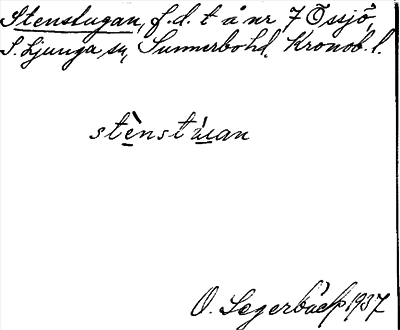 Stenstugan, f.d. t å nr 7 Össjö,
S. Ljunga sn, Sunnerbo hd. Kronob. l.
stènstúan
O. Segerbäck 1937